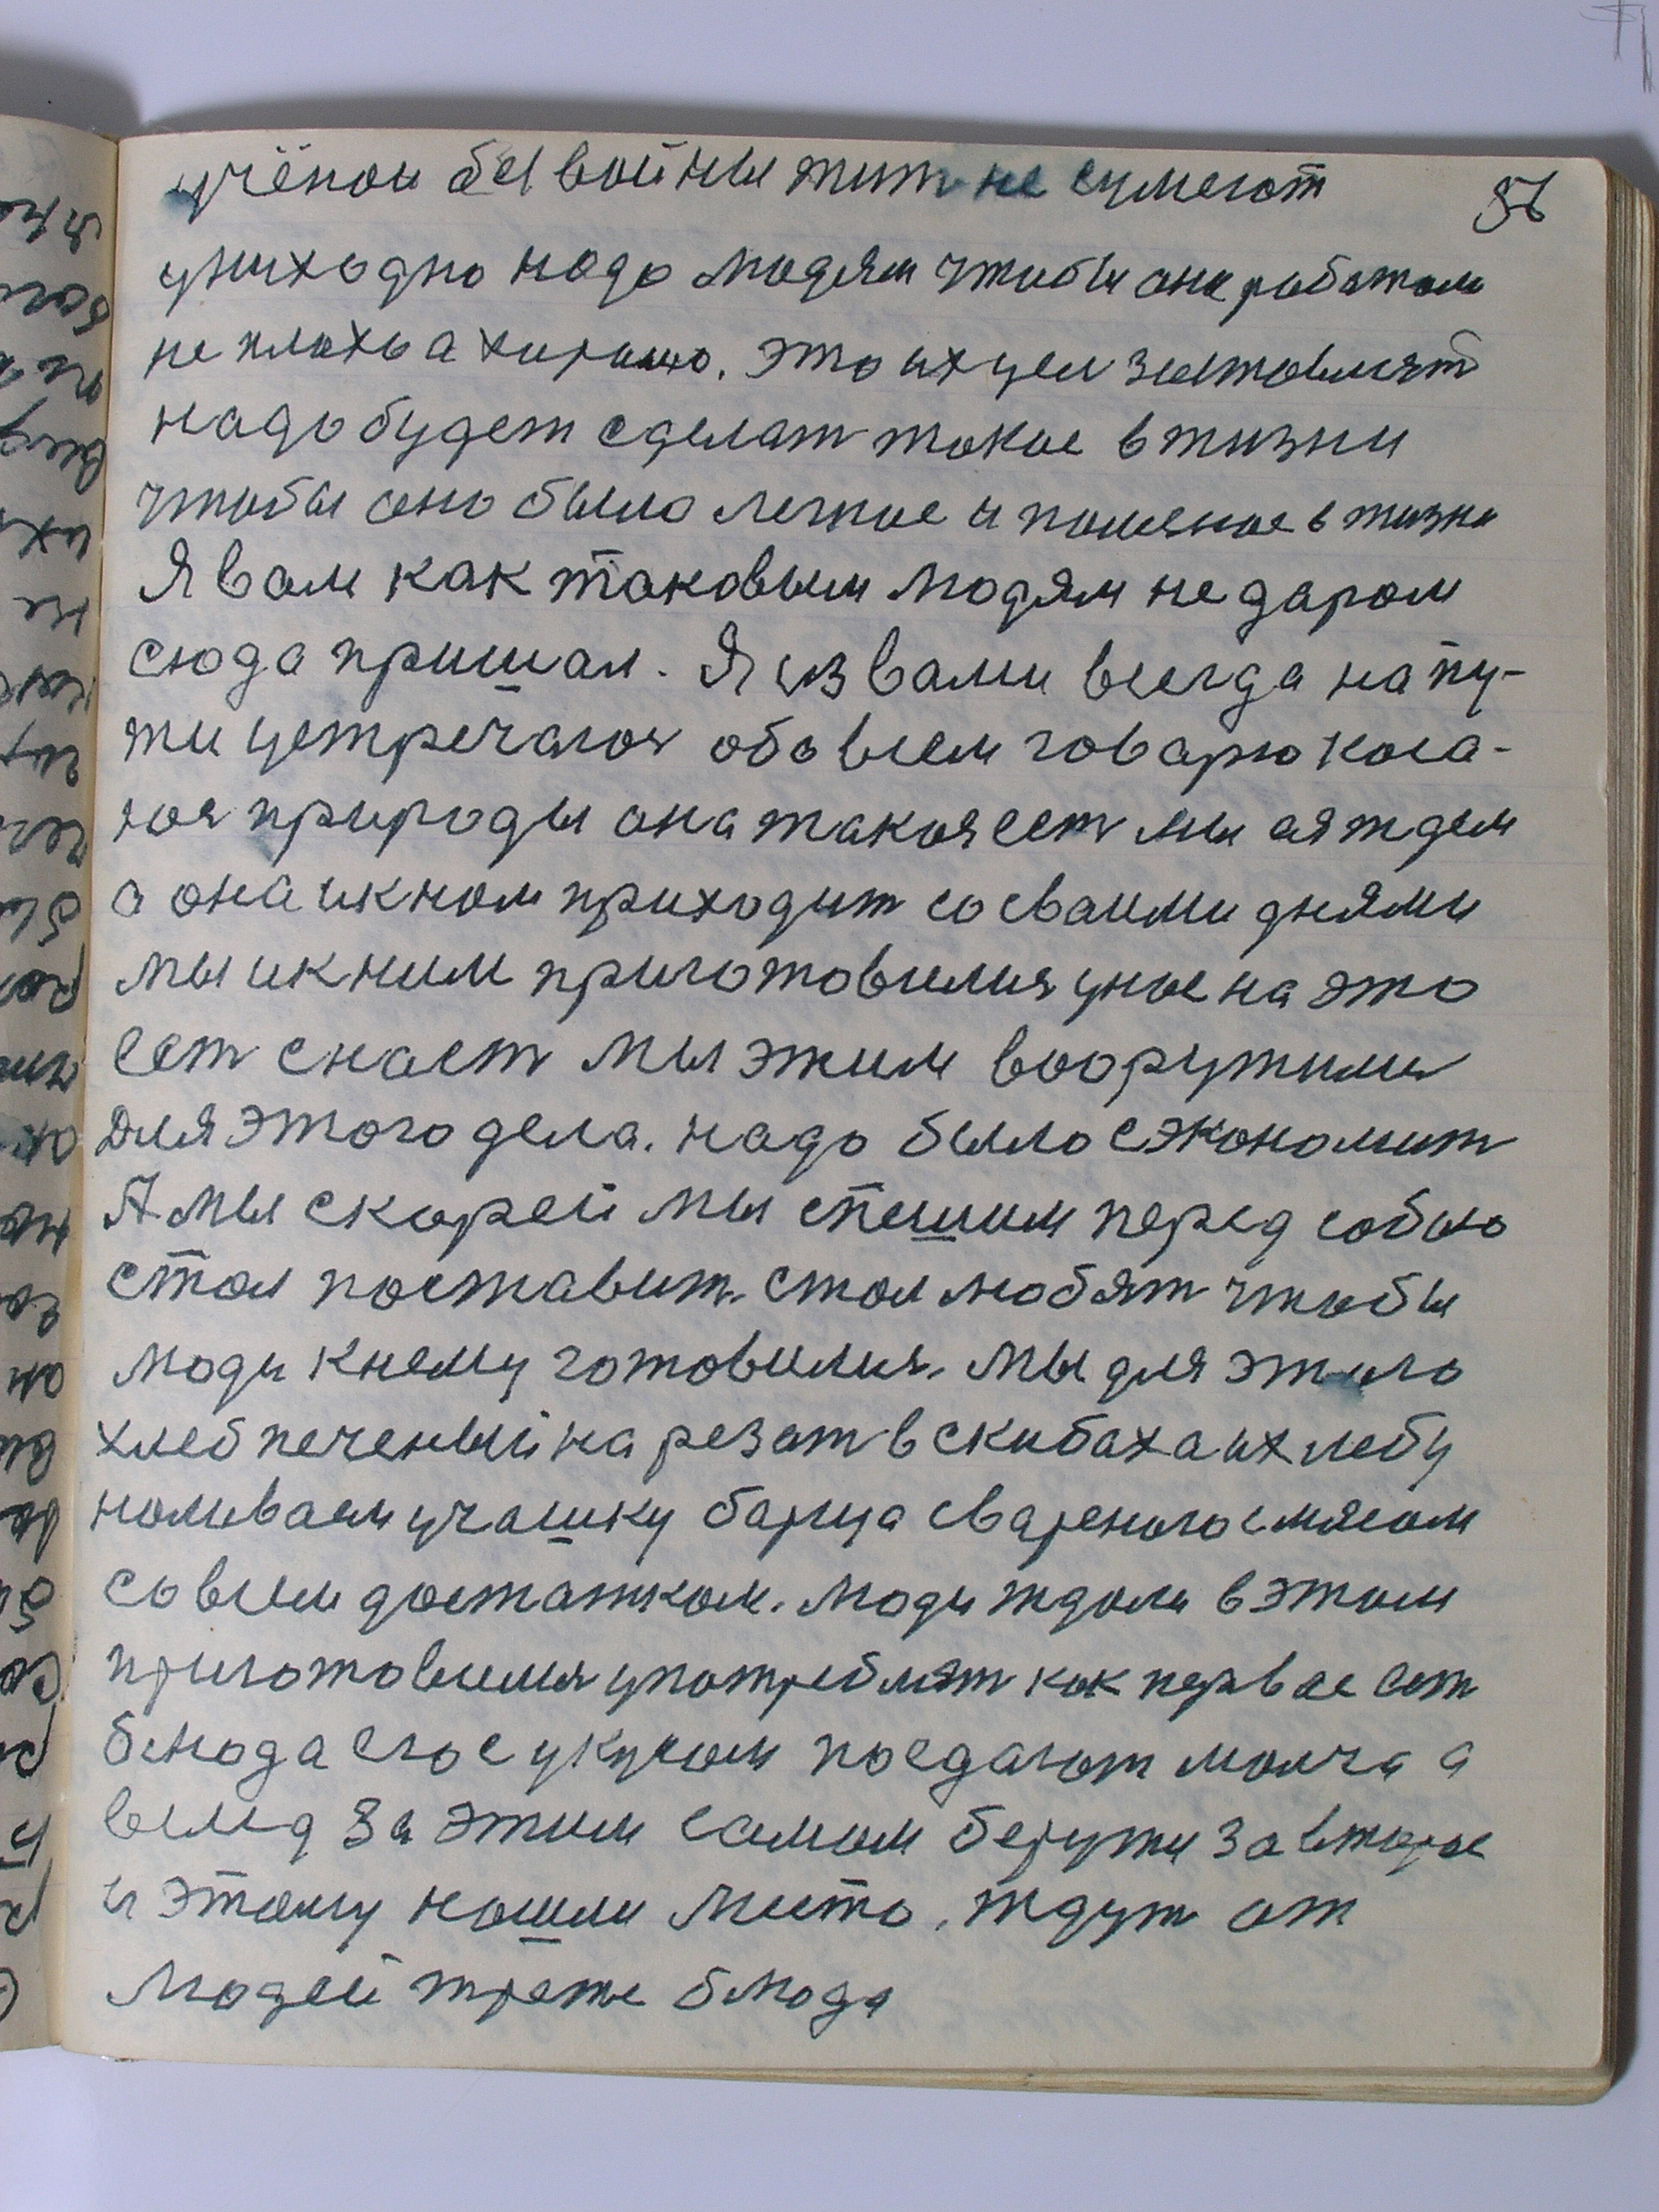 86
учёнои без войны жит не сумеют
у них одно надо людям чтобы они работали
не плохо а хорошо. это их цел заставлят
надо будет сделат такое в жизни
чтобы оно было легкое и полезное в жизни
Я вам как таковым людям не даром
сюда пришол. Я из вами всегда на пу-
ти устречаюся обо всем говарю каса-
ное природы она такая ест мы ея ждем
а она и к нам приходит со сваими днями
мы и к ним приготовилися у нас на это
ест снаст мы этим вооружилис
для этого дела. надо было сэкономит
А мы скорей мы спешим перед собою
стол поставит. стол любят чтобы
люди к нему готовилися. мы для этого
хлеб печеный на резат в скибах а их лебу
наливаем у чашку барща свареного с мясом
со всим достатком. люди ждали в этом
приготовилися употреблят как первое ест
блюда его с укусом поедают молча а
вслед за этим самом беружи за второе
и этому нашли место. ждут от
людей трете блюда